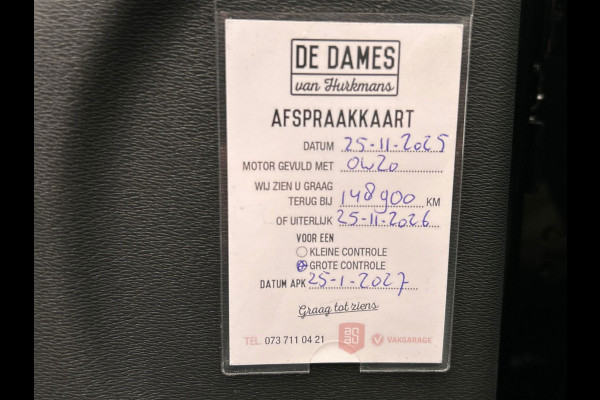 DE DAMES
van Hurkmans
AFSPRAAKKAART
DATUM 25-11-2025
MOTOR GEVULD MET 0W20
WIJ ZIEN U GRAAG
TERUG BIJ 148900 KM
OF UITERLIJK 25-11-2026
VOOR EEN
KLEINE CONTROLE
GROTE CONTROLE
DATUM APK 25-1-2027
Graag tot ziens
TEL. 073 711 04 21 VAKGARAGE